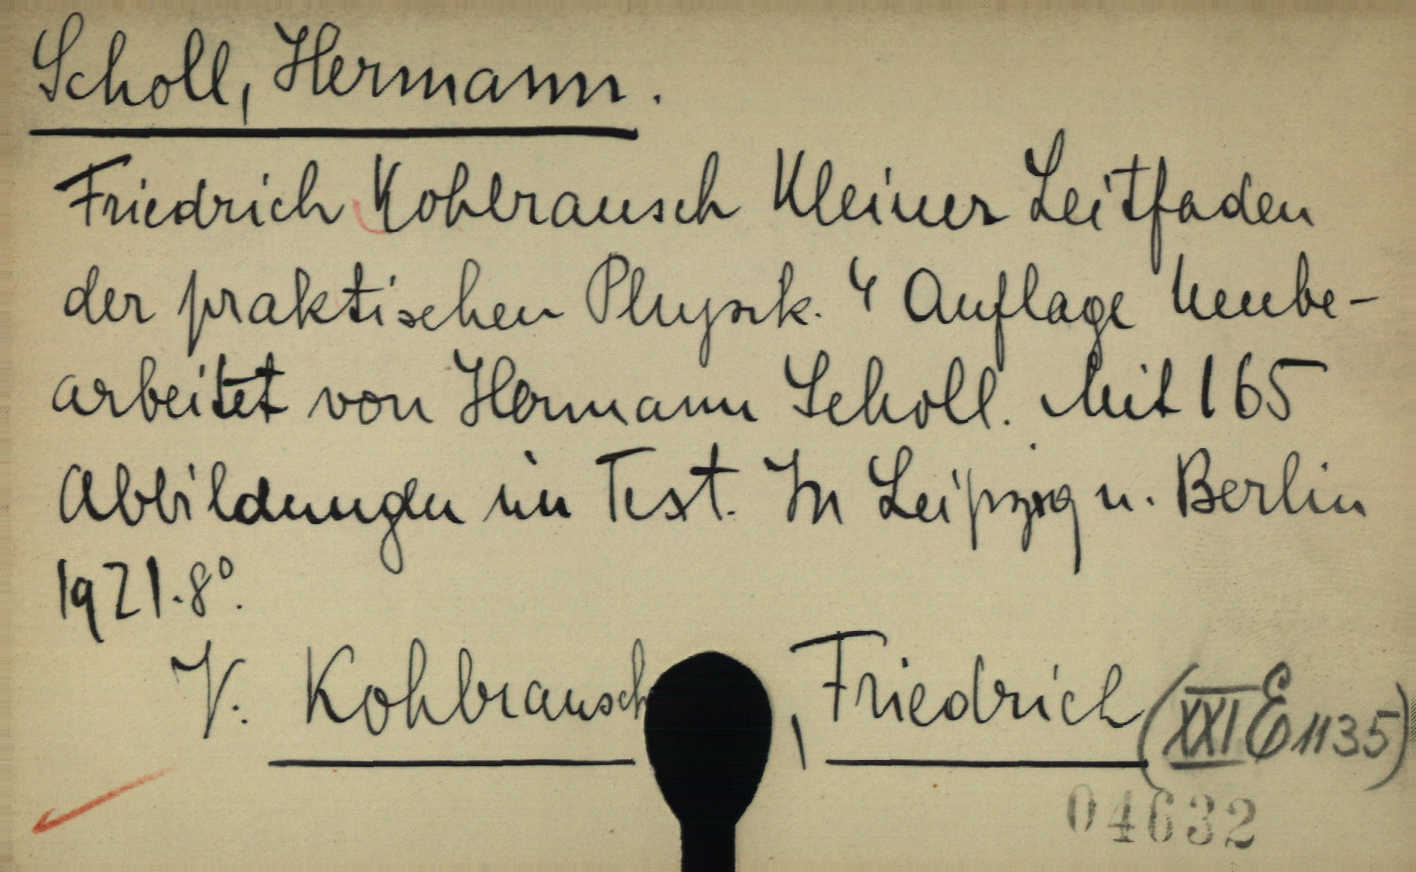 Scholl, Hermann.
Friedrich Kohlrausch Kleiner Leitfaden
der praktischen Physik. 4 Auflage Neube-
arbeitet von Hermann Scholl. Mit 165
Abbildungen im Text. In Leipzig u. Berlin
1921. 8°.
V. Kohlrausch, Friedrich (XXI E 1135)
04632